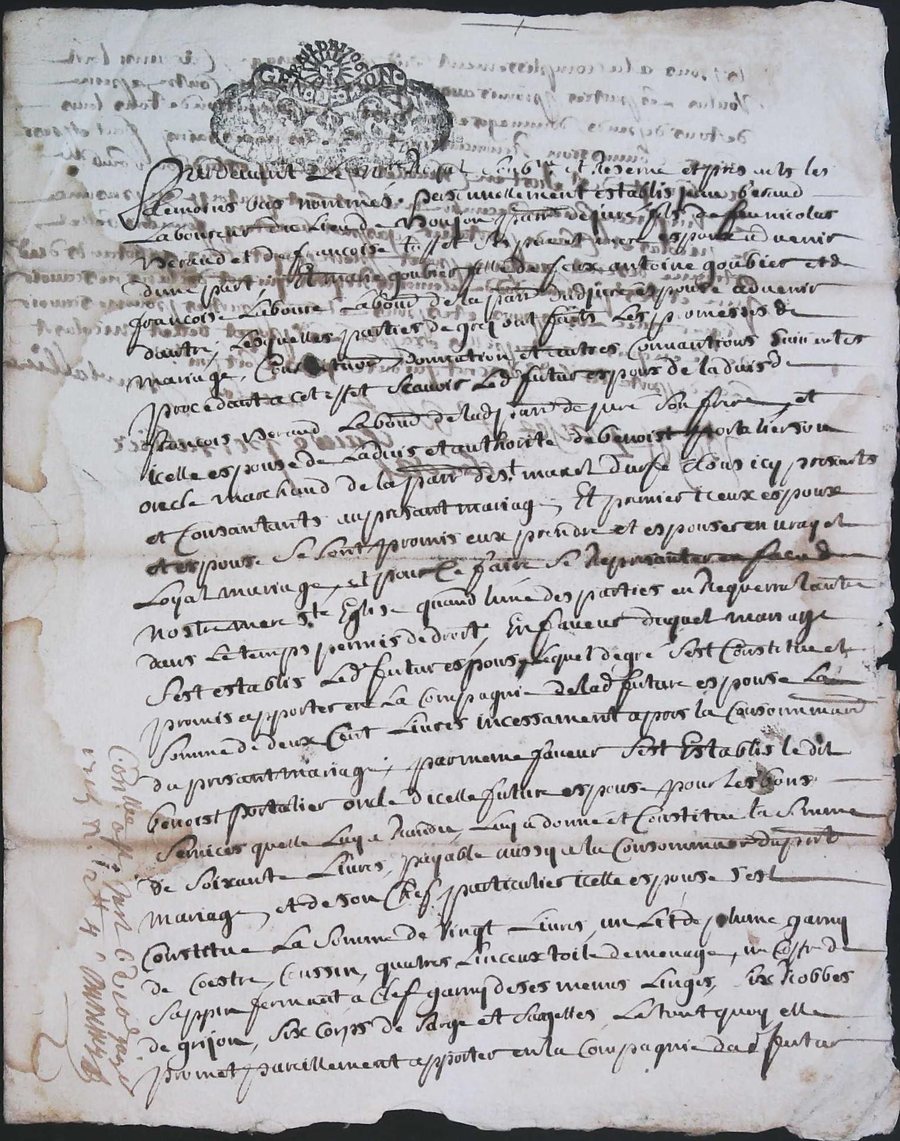 GEN DE LION
Pardevant Le not Royal et Reservé et presents les
temoins bas nommés personnellement establis jean beraud
Laboureur du Lieu de parr de juré fils de feu nicolas
beraud et de françoise espoux advenir
d'une part, Et marie goubier fille de feux antoine goubier et de
françoise Labour de la parr dud juré espouse advenir
d'autre, Lesquelles parties de gré ont faits Les promesses de
mariage, Constitution donnation et autres Conventions suivantes
procedant a cet effet scavoir Led futur espoux de ladvis de
françois beraud Labour de lad parr de juré son frere, et
icelle espouse de Ladvis et authorité de benoist portalier son
oncle marchand de la parr de st marcel durfé tous icy presents
et Consantants au present mariage, Et premier iceux espoux
et espouse se sont promis eux prendre et espouser en vray et
Loyal mariage, et pour ce faire se Representer en face de
nostre mere ste Eglise quand l'une des parties en Requerra l'autre
dans Le temps permis de droit, En faveur duquel mariage
s'est establis Led futur espoux, lequel de gré s'est Constitue et
promis apporter en La Compagnie de lad future espouse La
somme de deux Cent Livres incessament apres la Consommaon
du present mariage, par meme faveur s'est Establis le dit
benoist portalier oncle dicelle future espouse pour les bons
services quelle Luy a Randu, Luy a donne et Constitue la somme
de soixante Livres, payable aussy a la Consommaon du prnt
mariage, et de son Chef particulier icelle espouse s'est
Constitue La somme de vingt Livres, un Lit de plume garny
de Coestre, Cussin, quatres Linceux toile de menage, un Coffre de
sappin fermant a Clef garny de ses menus Linges, six Robbes
de grijon, six corps de sarge et Le tout quoy elle
promet pareillement apporter en la Compagnie dud futur